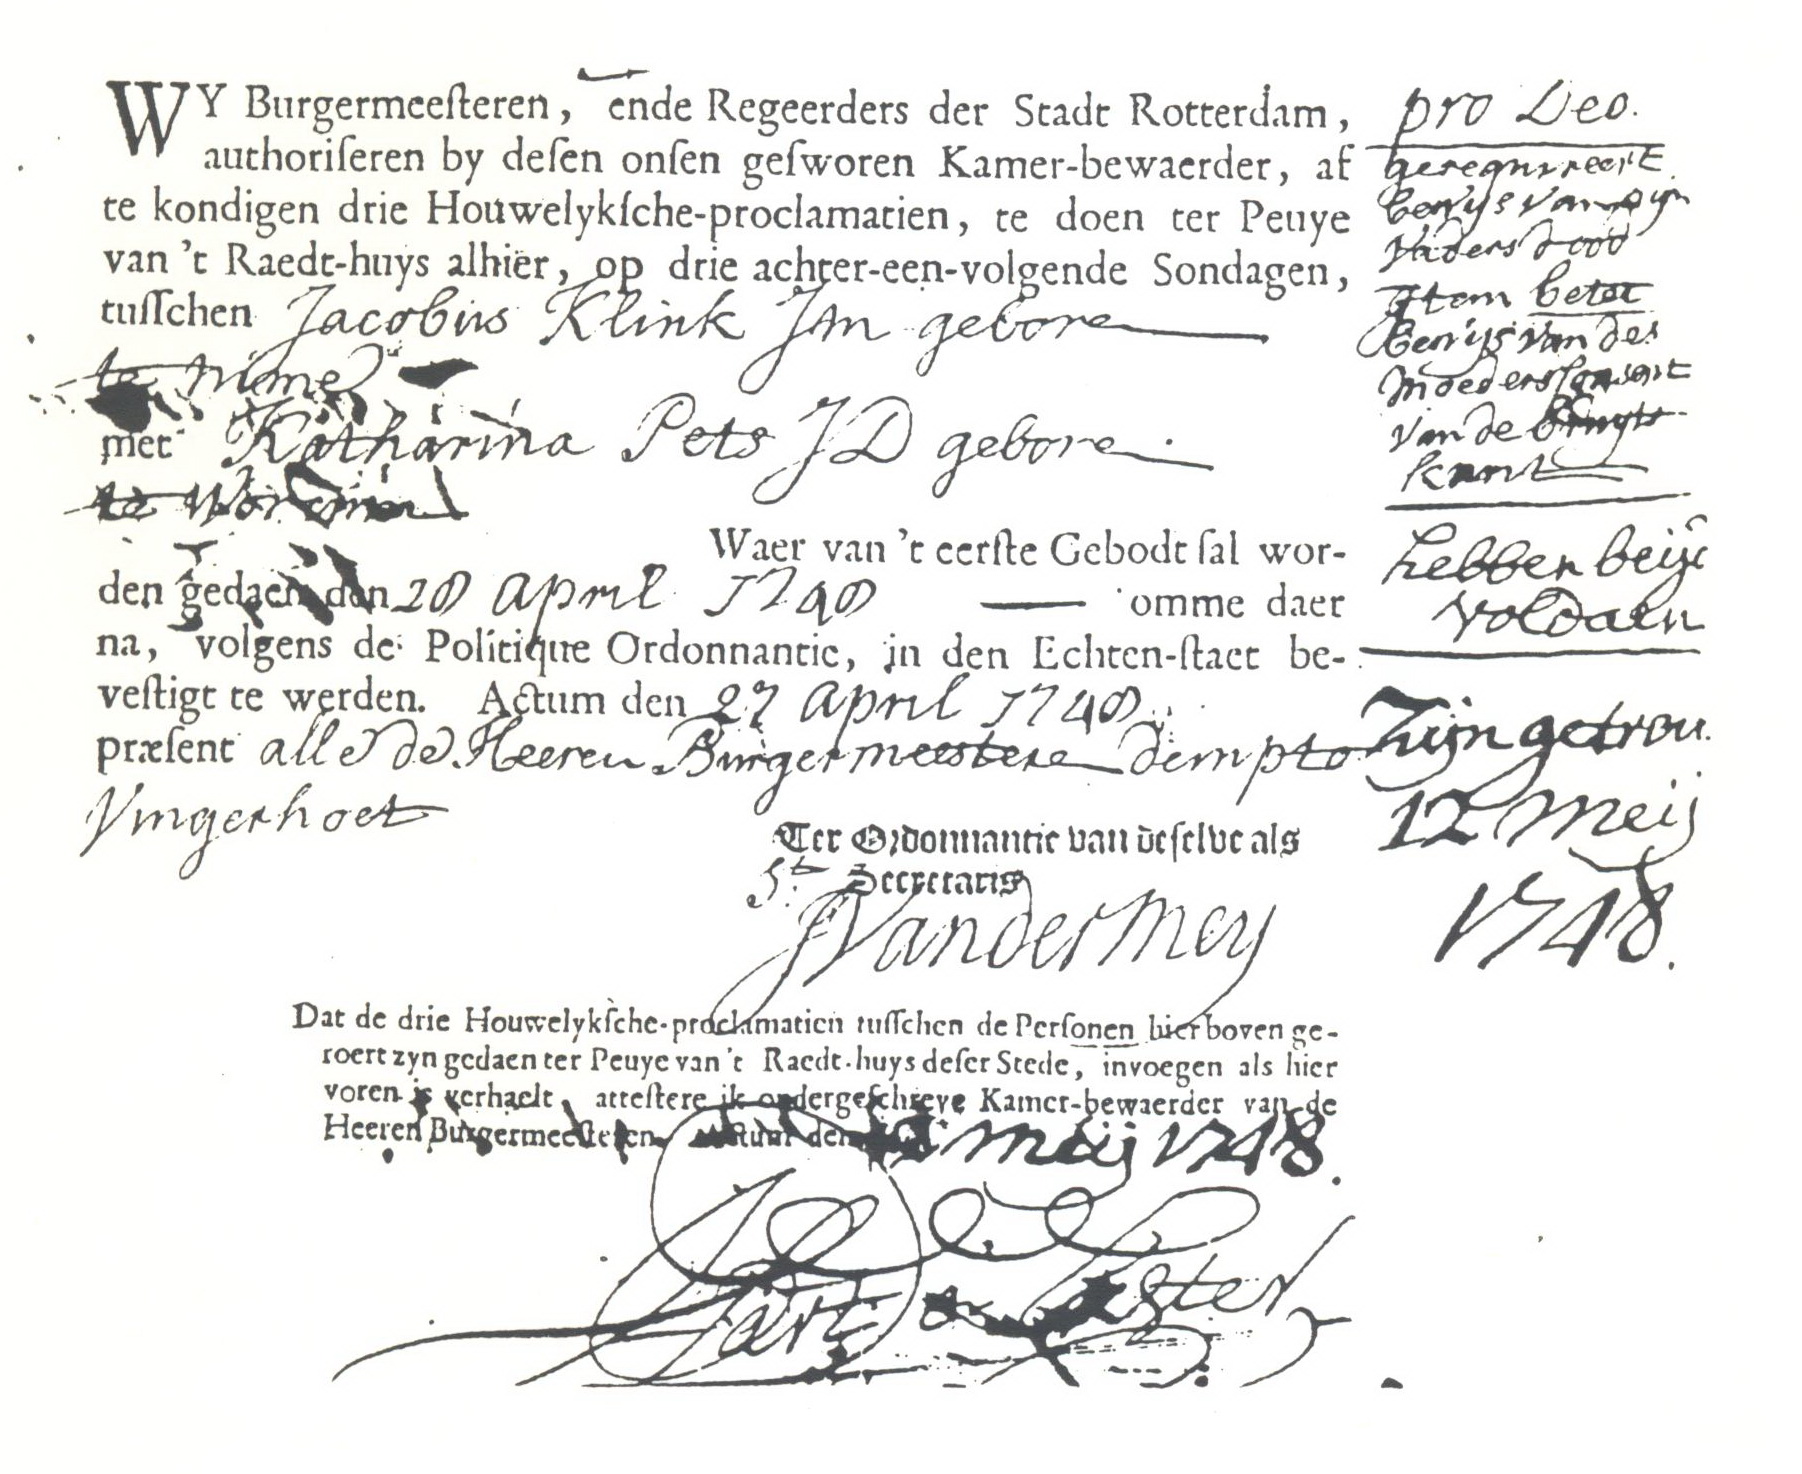 WY Burgermeesteren, ende Regeerders der Stadt Rotterdam,
authoriseren by desen onsen gesworen Kamer-bewaerder, af
te kondigen drie Houwelyksche-proclamatien, te doen ter Peuye
van 't Raedt-huys alhier, op drie achter-een-volgende Sondagen,
tusschen Jacobus Klink Jm gebore
te
met Katharina Pets JD gebore
te
Waer van 't eerste Gebodt sal wor-
den gedaen den 28 april 1748 omme daer
na, volgens de Politique Ordonnantie, in den Echten-staet be-
vestigt te werden. Actum den 27 april 1748
præsent alle de Heeren Burgermeestere dempto
Vingerhoet
Ter Ordonnantie van deselve als
St. Secretaris
JVanderMey
Dat de drie Houwelyksche-proclamatien tusschen de Personen hier boven ge-
roert zyn gedaen ter Peuye van 't Raedt-huys deser Stede, invoegen als hier
voren is verhaelt, attestere ik ondergeschreve Kamer-bewaerder van de
Heeren Burgermeesteren. Actum den meij 1748.
pro Deo.
gerequireert
bewijs van zijn
vaders dood
Item beter
bewijs van des
moeders consent
van de bruyts
kant
hebben beije
voldaen
Zijn getrou
12 Meij
1748.